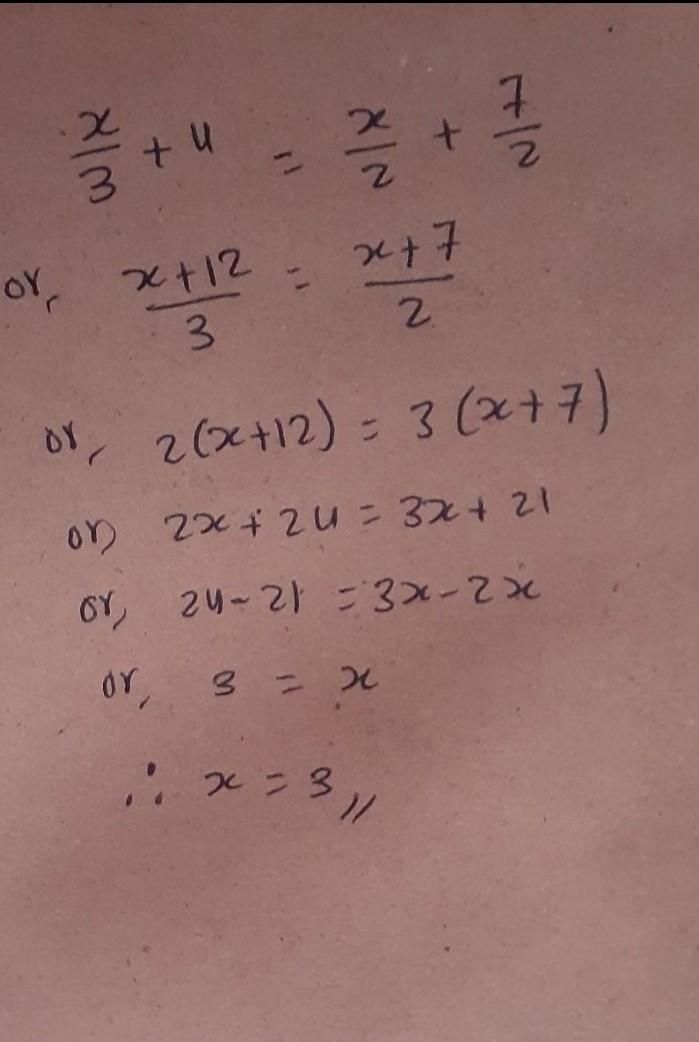 x/3 + 4 = x/2 + 7/2
or, (x+12)/3 = (x+7)/2
or, 2(x+12) = 3(x+7)
or, 2x + 24 = 3x + 21
or, 24 - 21 = 3x - 2x
or, 3 = x
∴ x = 3 //